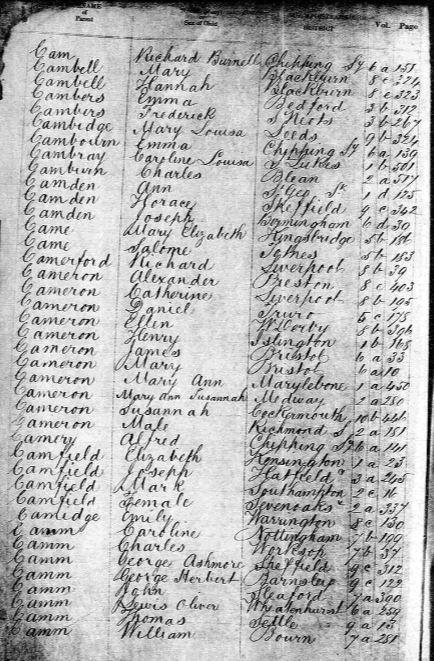 NAME of Parent Sex of Child DISTRICT Vol. Page
Cam Richard Burnell Chipping Sy 6 a 151
Cambell Mary Blackburn 8 e 324
Cambell Hannah Blackburn 8 e 323
Cambers Emma Bedford 3 b 312
Cambers Frederick St Neots 3 b 267
Cambidge Mary Louisa Leeds 9 b 324
Cambourn Emma Chipping Sy 6 a 139
Cambray Caroline Louisa St Lukes 1 b 501
Camburn Charles Blean 2 a 517
Camden Ann St Geo 1 d 125
Camden Horace Sheffield 9 c 342
Camden Joseph Birmingham 6 d 30
Came Mary Elizabeth Kingsbridge 5 b 186
Came Salome Totnes 5 b 153
Camerford Richard Liverpool 8 b 39
Cameron Alexander Preston 8 e 403
Cameron Catherine Liverpool 8 b 105
Cameron Daniel Truro 5 c 178
Cameron Ellen W Derby 8 b 396
Cameron Henry Islington 1 b 168
Cameron James Bristol 6 a 33
Cameron Mary Bristol 6 a 10
Cameron Mary Ann Marylebone 1 a 450
Cameron Mary Ann Susannah Medway 2 a 280
Cameron Susannah Cockermouth 10 b 444
Cameron Male Richmond S 2 a 181
Camery Alfred Chipping Sy 6 a 141
Camfield Elizabeth Kensington 1 a 23
Camfield Joseph Hatfield 3 a 245
Camfield Mark Southampton 2 c 16
Camfield Female Sevenoaks 2 a 337
Camidge Emily Warrington 8 c 130
Camm Caroline Nottingham 7 b 199
Camm Charles Worksop 7 b 37
Camm George Ashmore Sheffield 9 c 312
Camm George Herbert Barnsley 9 c 122
Camm John Sleaford 7 a 390
Camm Lewis Oliver Wheatenhurst 6 a 259
Camm Thomas Settle 9 a 13
Camm William Bourn 7 a 281